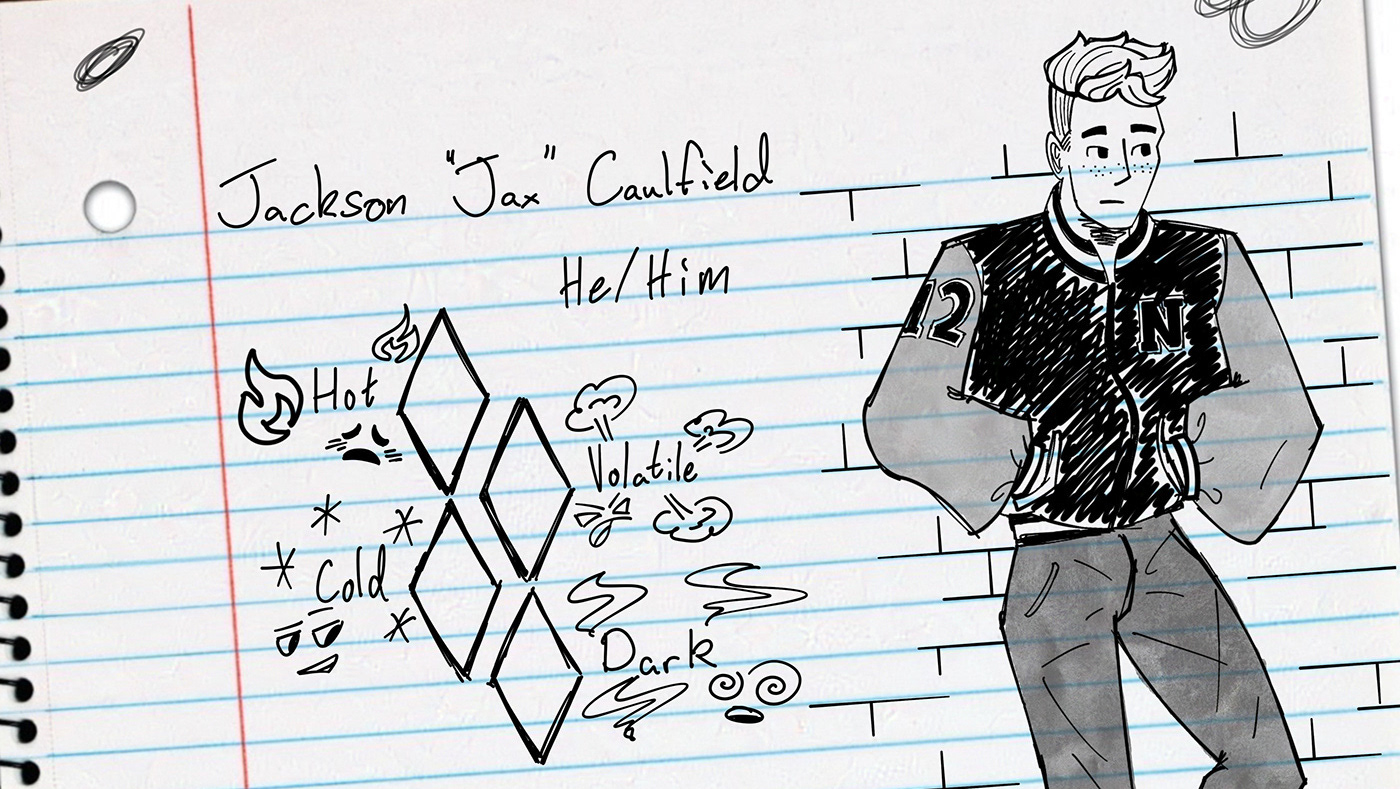 Jackson "Jax" Caulfield
He/Him
12
N
Hot
Volatile
Cold
Dark